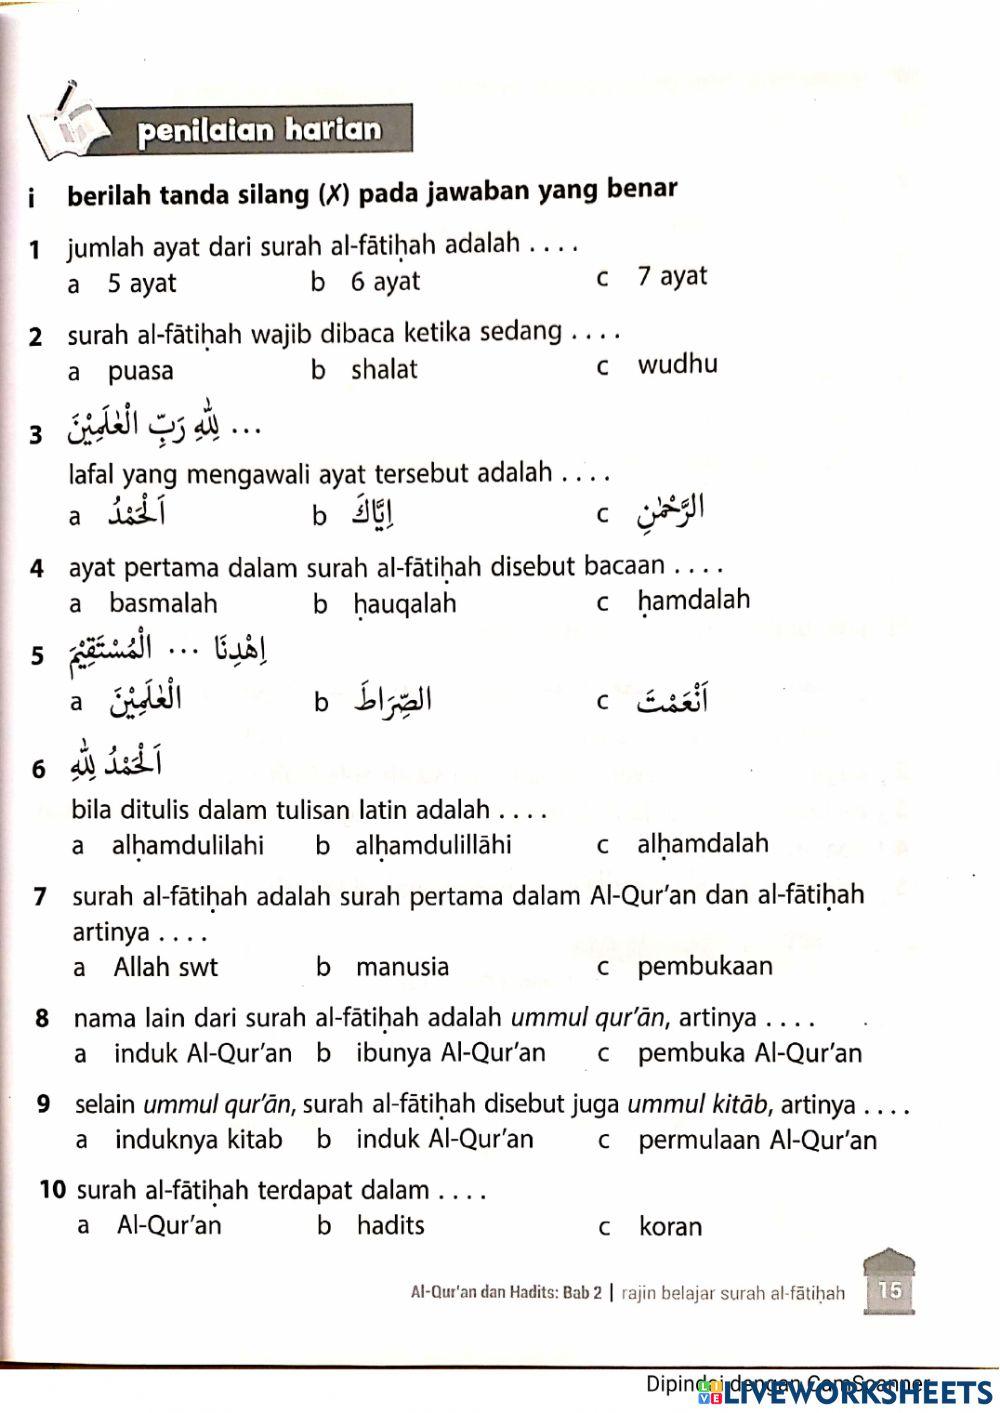 penilaian harian
i berilah tanda silang (X) pada jawaban yang benar
1 jumlah ayat dari surah al-fātiḥah adalah . . . .
a 5 ayat b 6 ayat c 7 ayat
2 surah al-fātiḥah wajib dibaca ketika sedang . . . .
a puasa b shalat c wudhu
3 ... لِلّٰهِ رَبِّ الْعٰلَمِيْنَ
lafal yang mengawali ayat tersebut adalah . . . .
a اَلْحَمْدُ b اِيَّاكَ c الرَّحْمٰنِ
4 ayat pertama dalam surah al-fātiḥah disebut bacaan . . . .
a basmalah b ḥauqalah c ḥamdalah
5 اِهْدِنَا ... الْمُسْتَقِيْمَ
a الْعٰلَمِيْنَ b الصِّرَاطَ c اَنْعَمْتَ
6 اَلْحَمْدُ لِلّٰهِ
bila ditulis dalam tulisan latin adalah . . . .
a alḥamdulilahi b alḥamdulillāhi c alḥamdalah
7 surah al-fātiḥah adalah surah pertama dalam Al-Qur'an dan al-fātiḥah
artinya . . . .
a Allah swt b manusia c pembukaan
8 nama lain dari surah al-fātiḥah adalah ummul qur'ān, artinya . . . .
a induk Al-Qur'an b ibunya Al-Qur'an c pembuka Al-Qur'an
9 selain ummul qur'ān, surah al-fātiḥah disebut juga ummul kitāb, artinya . . . .
a induknya kitab b induk Al-Qur'an c permulaan Al-Qur'an
10 surah al-fātiḥah terdapat dalam . . . .
a Al-Qur'an b hadits c koran
Al-Qur'an dan Hadits: Bab 2 | rajin belajar surah al-fātiḥah 15
Dipindai dengan CamScanner
LIVE LIVEWORKSHEETS